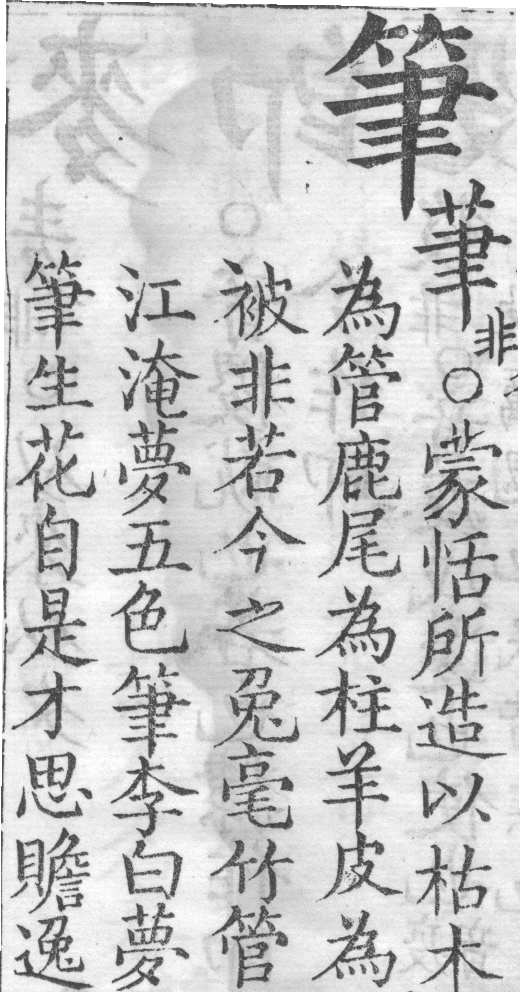 筆
茟非○蒙恬所造以枯木
為管鹿尾為柱羊皮為
被非若今之兔毫竹管
江淹夢五色筆李白夢
筆生花自是才思贍逸